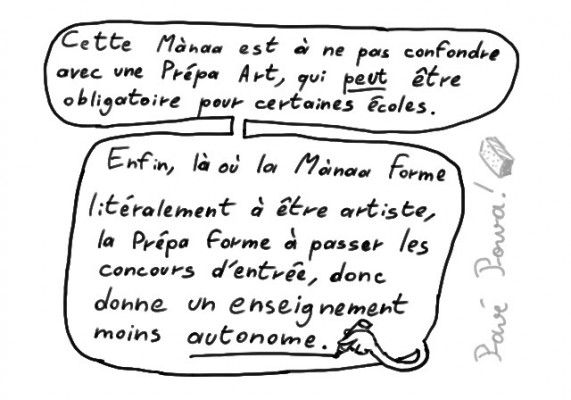 Cette Mànaa est à ne pas confondre
avec une Prépa Art, qui peut être
obligatoire pour certaines écoles.
Enfin, là où la Mànaa forme
litéralement à être artiste,
la Prépa forme à passer les
concours d'entrée, donc
donne un enseignement
moins autonome.
Pavé Powa!